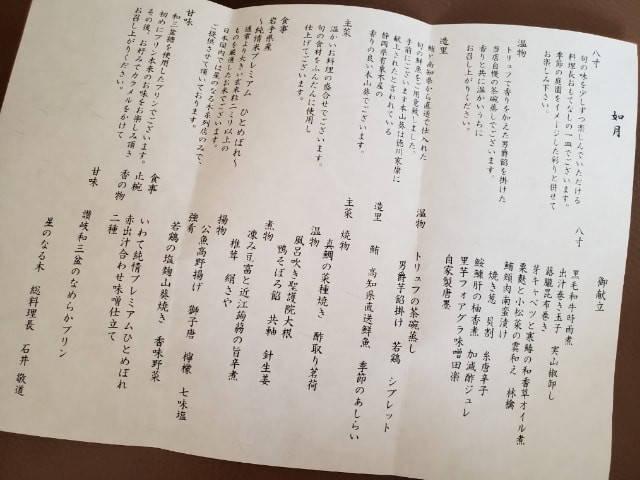 如月
八寸
旬の味を少しずつ楽しんでいただける
料理長おもてなしの一皿でございます。
季節の庭園をイメージした彩りと併せて
お楽しみ下さい。
温物
トリュフで香りを加えた男爵餡を掛けた
当店自慢の茶碗蒸しでございます。
香りと共に温かいうちに
お召し上がりください。
造里
鮪と高知県から直送で仕入れた
旬の鮮魚をご用意致しました。
手前にございます本山葵は徳川家康に
献上されたといわれている
静岡県有東木産の
香りの良い本山葵です。
主菜
温かいお料理の盛合せでございます。
旬の食材をふんだんに使用し
仕上げてございます。
食事
岩手県産
～純情米プレミアム ひとめぼれ～
通常より大きい玄米粒二ミリ以上の
ものを厳選したお米でございます。
日本国内では星のなる木系列店のみで、
ご提供させて頂いております。
甘味
和三盆糖を使用したプリンでございます。
初めにプリン本来のお味をお楽しみ頂き
その後、お好みでカラメルをかけて
お召し上がりください。
御献立
八寸
黒毛和牛時雨煮
出汁巻き玉子 実山椒卸し
蕗朧昆布巻き
芽キャベツと寒鰆の和香草オイル煮
粟麩と小松菜の雲和え 林檎
鰆頬肉南蛮漬け
焼き葱 貝割 糸唐辛子
鮟鱇肝の柚香煮 加減酢ジュレ
里芋フォアグラ味噌田楽
自家製唐墨
温物
トリュフの茶碗蒸し
男爵芋餡掛け 若鶏 シブレット
造里
鮪 高知県直送鮮魚 季節のあしらい
主菜
焼物
真鯛の菜種焼き 酢取り茗荷
温物
風呂吹き聖護院大根
鴨そぼろ餡 共軸 針生姜
煮物
凍み豆富と近江蒟蒻の旨辛煮
椎茸 絹さや
揚物
公魚高野揚げ 獅子唐 檸檬 七味塩
強肴
若鶏の塩麹山葵焼き 香味野菜
食事
いわて純情プレミアムひとめぼれ
止椀
赤出汁合わせ味噌仕立て
香の物
二種
甘味
讃岐和三盆のなめらかプリン
星のなる木 総料理長 石井 敬道